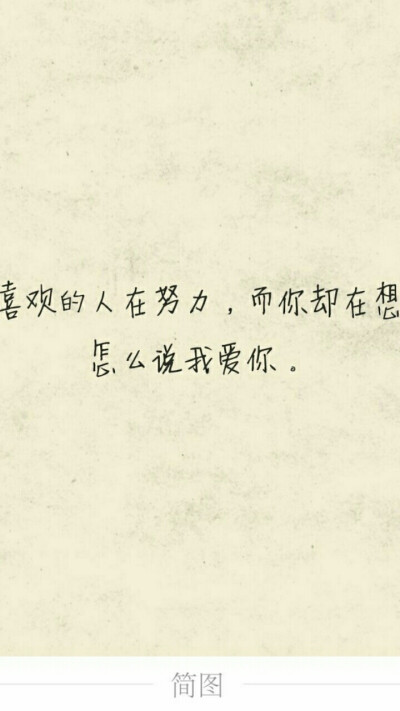 喜欢的人在努力，而你却在想
怎么说我爱你。
简图